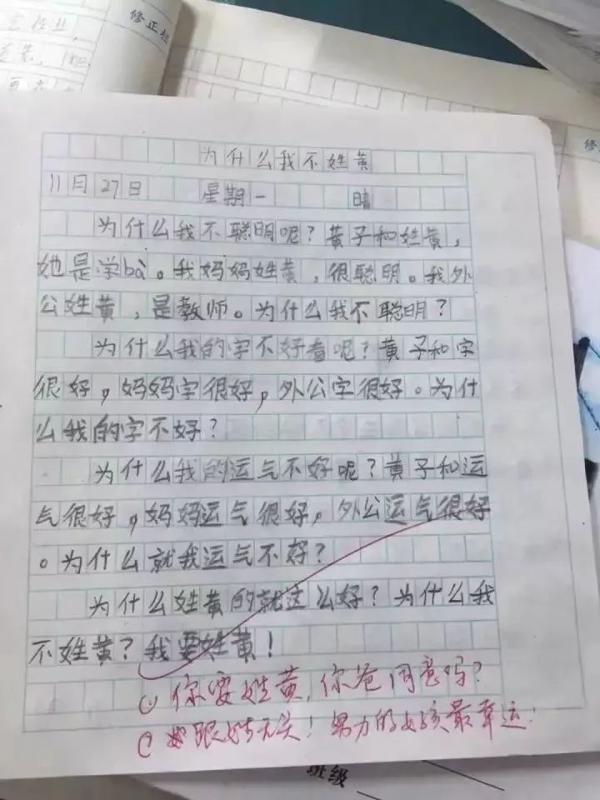 修正栏
修正栏
为什么我不姓黄
11月27日 星期一 晴
为什么我不聪明呢?黄子和姓黄,
她是学bà。我妈妈姓黄,很聪明。我外
公姓黄,是教师。为什么我不聪明?
为什么我的字不好看呢?黄子和字
很好,妈妈字很好,外公字很好。为什
么我的字不好?
为什么我的运气不好呢?黄子和运
气很好,妈妈运气很好,外公运气很好
。为什么就我运气不好?
为什么姓黄的就这么好?为什么我
不姓黄?我要姓黄!
你要姓黄,你爸同意吗?
跟姓无关!努力的女孩最幸运!
班级